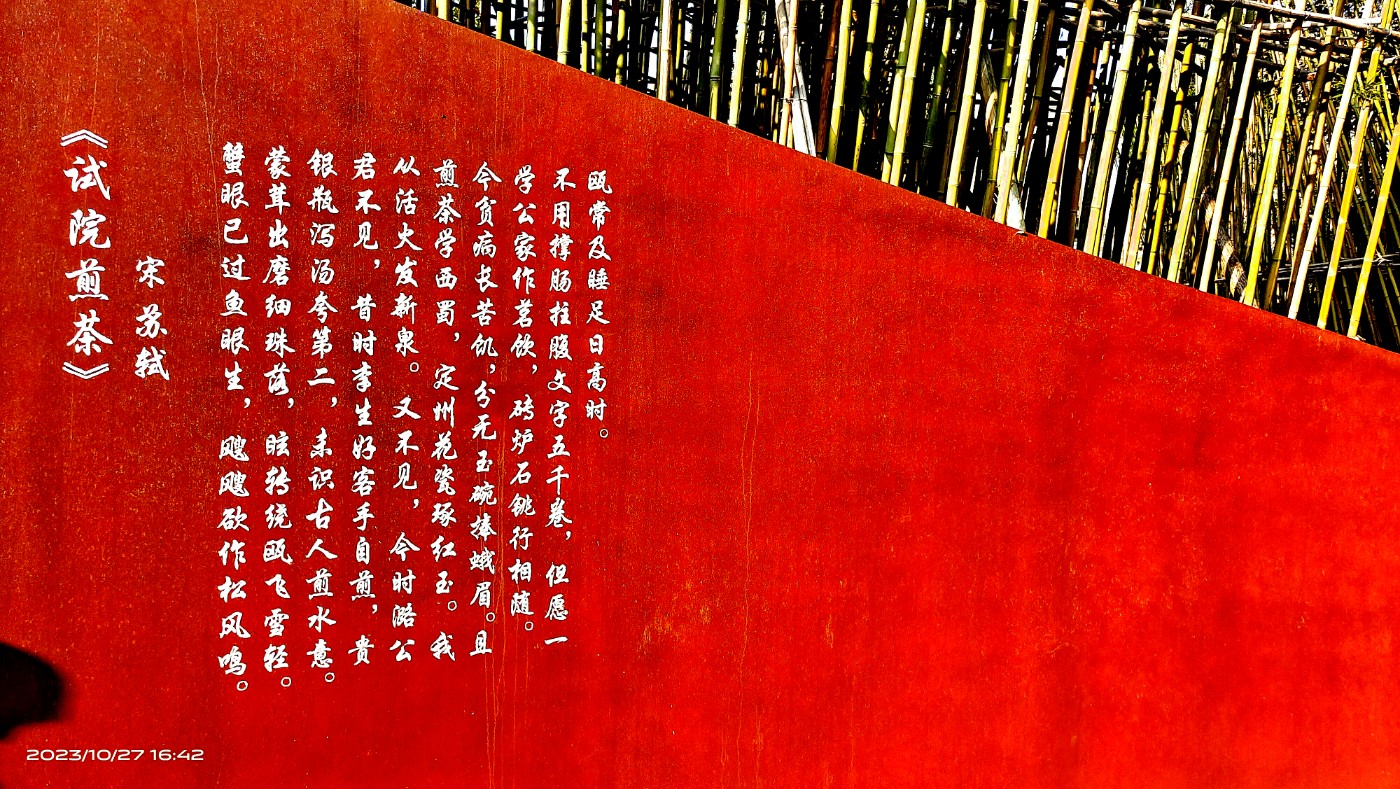 《试院煎茶》
宋 苏轼
蟹眼已过鱼眼生，飕飕欲作松风鸣。
蒙茸出磨细珠落，眩转绕瓯飞雪轻。
银瓶泻汤夸第二，未识古人煎水意。
君不见，昔时李生好客手自煎，贵
从活火发新泉。又不见，今时潞公
煎茶学西蜀，定州花瓷琢红玉。我
今贫病长苦饥，分无玉碗捧蛾眉。且
学公家作茗饮，砖炉石铫行相随。
不用撑肠拄腹文字五千卷，但愿一
瓯常及睡足日高时。
2023/10/27 16:42